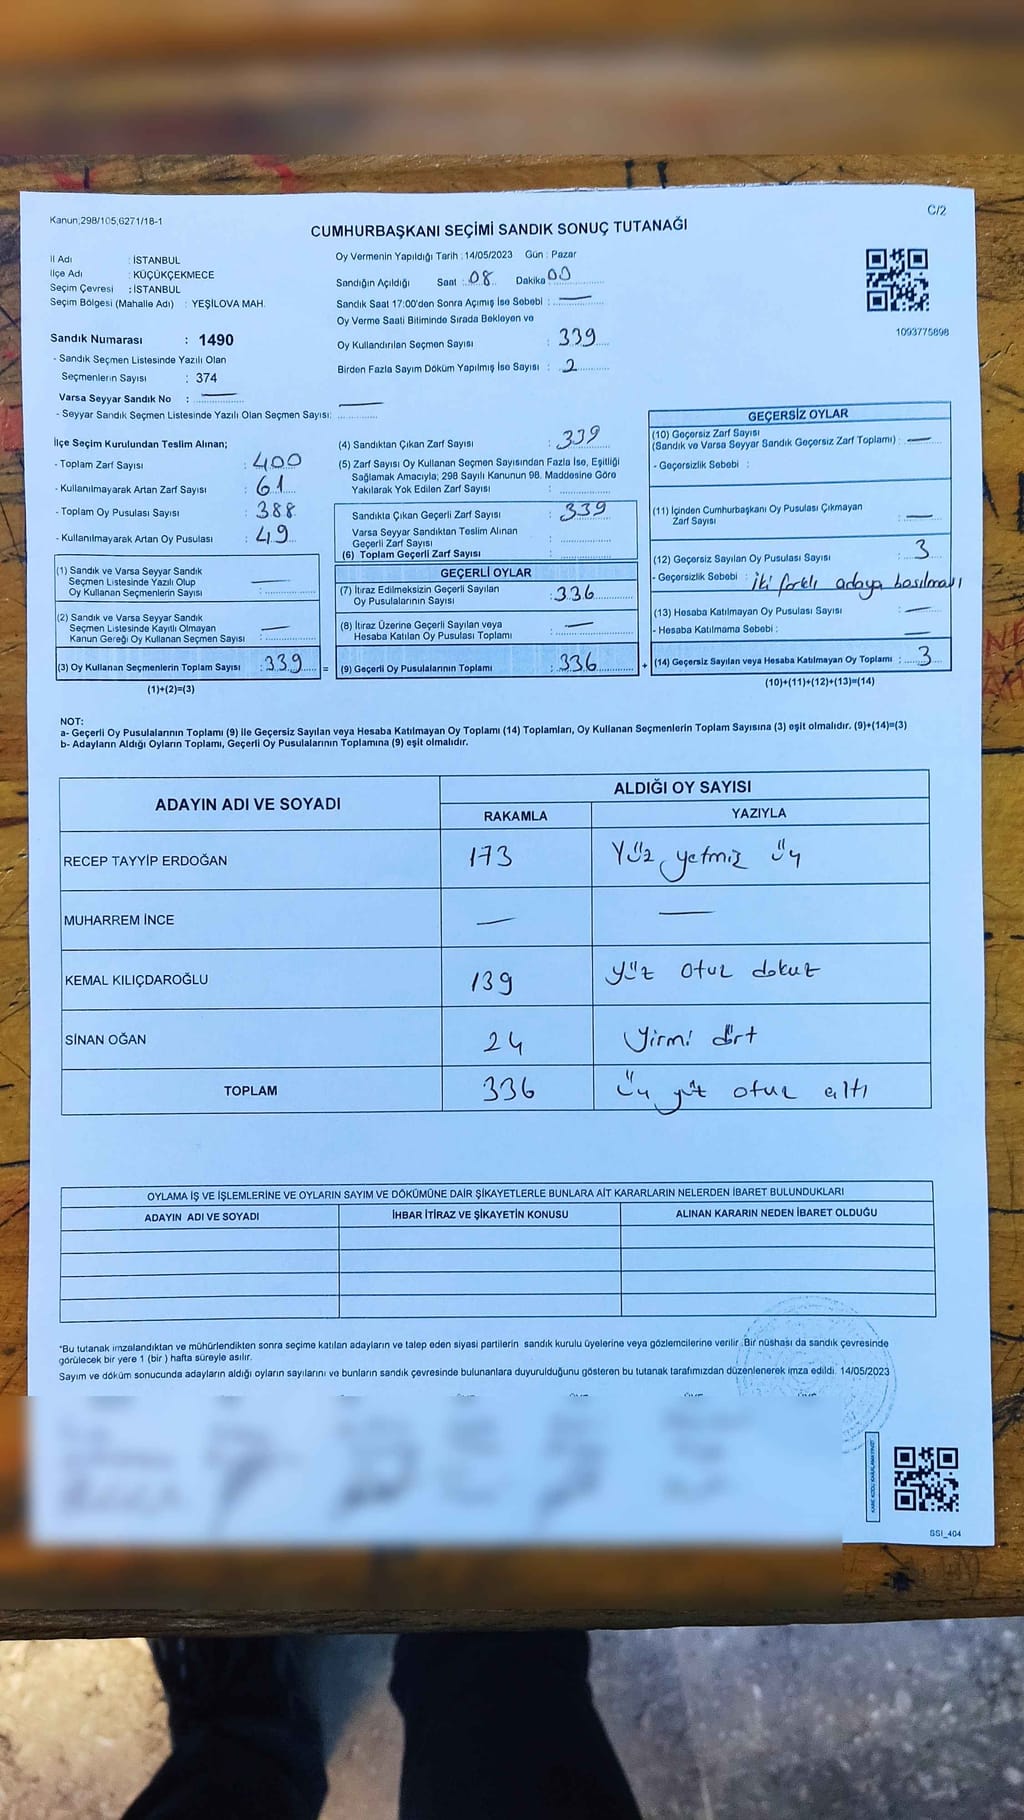 Kanun,298/105,6271/18-1
C/2
CUMHURBAŞKANI SEÇİMİ SANDIK SONUÇ TUTANAĞI
İl Adı : İSTANBUL
İlçe Adı : KÜÇÜKÇEKMECE
Seçim Çevresi : İSTANBUL
Seçim Bölgesi (Mahalle Adı) : YEŞİLOVA MAH.
Sandık Numarası : 1490
- Sandık Seçmen Listesinde Yazılı Olan
Seçmenlerin Sayısı : 374
Varsa Seyyar Sandık No : —
- Seyyar Sandık Seçmen Listesinde Yazılı Olan Seçmen Sayısı: —
Oy Vermenin Yapıldığı Tarih : 14/05/2023 Gün : Pazar
Sandığın Açıldığı Saat : 08 Dakika 00
Sandık Saat 17:00'den Sonra Açımış İse Sebebi : —
Oy Verme Saati Bitiminde Sırada Bekleyen ve
Oy Kullandırılan Seçmen Sayısı : 339
Birden Fazla Sayım Döküm Yapılmış İse Sayısı : 2
1093775898
İlçe Seçim Kurulundan Teslim Alınan;
- Toplam Zarf Sayısı : 400
- Kullanılmayarak Artan Zarf Sayısı : 61
- Toplam Oy Pusulası Sayısı : 388
- Kullanılmayarak Artan Oy Pusulası : 49
(1) Sandık ve Varsa Seyyar Sandık
Seçmen Listesinde Yazılı Olup
Oy Kullanan Seçmenlerin Sayısı : —
(2) Sandık ve Varsa Seyyar Sandık
Seçmen Listesinde Kayıtlı Olmayan
Kanun Gereği Oy Kullanan Seçmen Sayısı : —
(3) Oy Kullanan Seçmenlerin Toplam Sayısı : 339 =
(1)+(2)=(3)
(4) Sandıktan Çıkan Zarf Sayısı : 339
(5) Zarf Sayısı Oy Kullanan Seçmen Sayısından Fazla İse, Eşitliği
Sağlamak Amacıyla; 298 Sayılı Kanunun 98. Maddesine Göre
Yakılarak Yok Edilen Zarf Sayısı :
Sandıkta Çıkan Geçerli Zarf Sayısı : 339
Varsa Seyyar Sandıktan Teslim Alınan
Geçerli Zarf Sayısı :
(6) Toplam Geçerli Zarf Sayısı :
GEÇERLİ OYLAR
(7) İtiraz Edilmeksizin Geçerli Sayılan
Oy Pusulalarının Sayısı : 336
(8) İtiraz Üzerine Geçerli Sayılan veya
Hesaba Katılan Oy Pusulası Toplamı : —
(9) Geçerli Oy Pusulalarının Toplamı : 336 +
GEÇERSİZ OYLAR
(10) Geçersiz Zarf Sayısı
(Sandık ve Varsa Seyyar Sandık Geçersiz Zarf Toplamı) : —
- Geçersizlik Sebebi :
(11) İçinden Cumhurbaşkanı Oy Pusulası Çıkmayan
Zarf Sayısı : —
(12) Geçersiz Sayılan Oy Pusulası Sayısı : 3
- Geçersizlik Sebebi : İki farklı adaya basılması
(13) Hesaba Katılmayan Oy Pusulası Sayısı : —
- Hesaba Katılmama Sebebi : —
(14) Geçersiz Sayılan veya Hesaba Katılmayan Oy Toplamı : 3
(10)+(11)+(12)+(13)=(14)
NOT:
a- Geçerli Oy Pusulalarının Toplamı (9) ile Geçersiz Sayılan veya Hesaba Katılmayan Oy Toplamı (14) Toplamları, Oy Kullanan Seçmenlerin Toplam Sayısına (3) eşit olmalıdır. (9)+(14)=(3)
b- Adayların Aldığı Oyların Toplamı, Geçerli Oy Pusulalarının Toplamına (9) eşit olmalıdır.
ADAYIN ADI VE SOYADI
ALDIĞI OY SAYISI
RAKAMLA YAZIYLA
RECEP TAYYİP ERDOĞAN 173 Yüz yetmiz üç
MUHARREM İNCE — —
KEMAL KILIÇDAROĞLU 139 yüz otuz dokuz
SİNAN OĞAN 24 Yirmi dört
TOPLAM 336 Üç yüz otuz altı
OYLAMA İŞ VE İŞLEMLERİNE VE OYLARIN SAYIM VE DÖKÜMÜNE DAİR ŞİKAYETLERLE BUNLARA AİT KARARLARIN NELERDEN İBARET BULUNDUKLARI
ADAYIN ADI VE SOYADI İHBAR İTİRAZ VE ŞİKAYETİN KONUSU ALINAN KARARIN NEDEN İBARET OLDUĞU
*Bu tutanak imzalandıktan ve mühürlendikten sonra seçime katılan adayların ve talep eden siyasi partilerin sandık kurulu üyelerine veya gözlemcilerine verilir. Bir nüshası da sandık çevresinde
görülecek bir yere 1 (bir ) hafta süreyle asılır.
Sayım ve döküm sonucunda adayların aldığı oyların sayılarını ve bunların sandık çevresinde bulunanlara duyurulduğunu gösteren bu tutanak tarafımızdan düzenlenerek imza edildi. 14/05/2023
SSI_404